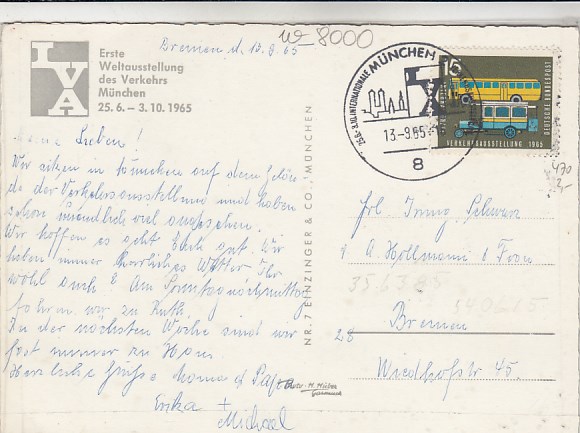 Erste
Weltausstellung
des Verkehrs
München
25.6. – 3.10.1965
IVA
Bremen d. 13.9.65
8000
MÜNCHEN
INTERNATIONALE
IVA
13.-9.65
8
15
DEUTSCHE BUNDESPOST
VERKEHRSAUSSTELLUNG 1965
470
Meine Lieben!
Wir sitzen in München auf dem Gelän
de der Verkehrsausstellung und haben
schon unendlich viel angesehen.
Wir hoffen es geht Euch gut. Wir
haben immer herrliches Wetter. Ihr
wohl auch? Am Sonntagnachmittag
fahren wir zu Ruth.
In der nächsten Woche sind wir
fast immer zu Haus.
Herzliche Grüße Mama &
Erika +
Michael
NR. 7 EINZINGER & CO., MÜNCHEN
Frl. Irmg. Schwarz
A. Hollmann & Frau
28 Bremen
Wiedhofstr. 45.